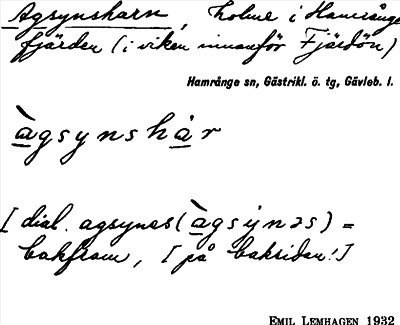 Agsynsharn, holme i Hamrånge
fjärden (i viken innanför Fjärdön)
Hamrånge sn, Gästrikl. ö. tg, Gävleb. l.
àgsynshàr
[dial. agsynes (àgsẏnəs) =
bakfram, [på baksidan!]
EMIL LEMHAGEN 1932